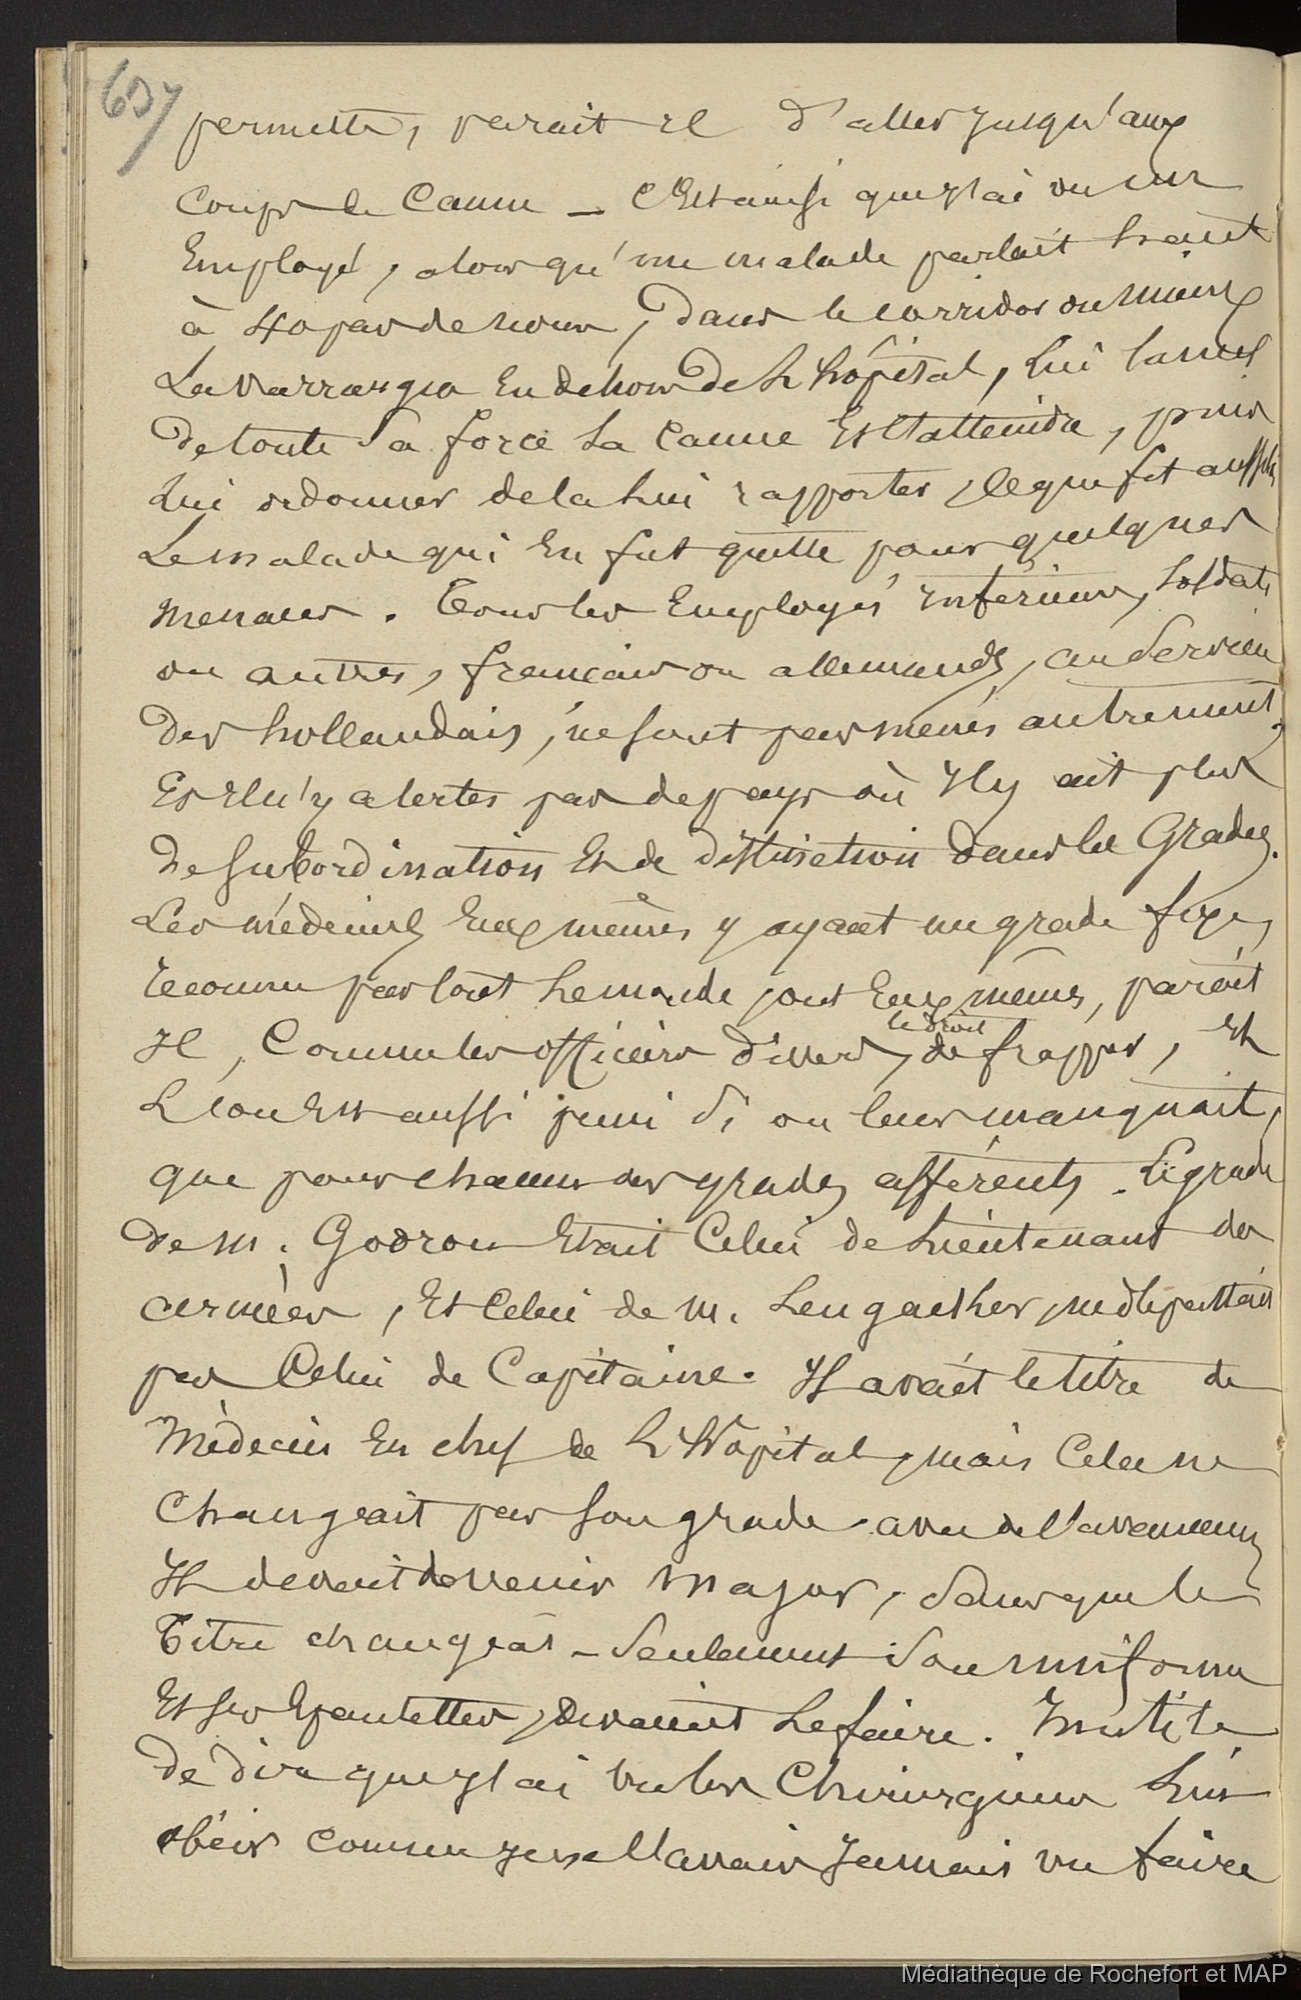 637
permette, parait il d'aller jusqu'aux
coups de Canne _ C'Est ainsi que j'ai vu un
Employé, alors qu'un malade parlait haut
à 40 pas de nous, dans le corridor ou mieux
La varrangea En dehors de L'hôpital, Lui lancer
de toute Sa force La Canne Et l'atteindre, puis
Lui ordonner de la Lui rapporter, ce que fit aussitôt
Le malade qui En fut quitte pour quelques
menaces. Tous les Employés inférieurs, soldats
ou autres, français ou allemands, au Service
des hollandais, ne sont pas menés autrement,
Et Il n'y a certes pas de pays où Il y ait plus
de Subordination Et de distinction dans les Grades.
Les médecins Eux mêmes y ayant un grade fixe,
reconnu par tout Le monde, ont Eux mêmes, parait
Il, Comme les officiers divers, le droit de frapper, Et
L'on Est aussi puni Si on leur manquait,
que pour chacun des grades afférents. Le grade
de M. Godron Etait Celui de Lieutenant des
armées, Et Celui de M. Lengacher, ne dépassait
pas Celui de Capitaine. Il avait le titre de
Médecin En chef de L'hôpital, mais Cela ne
Changeait pas Son grade. avec de l'avancement
Il devait devenir Major, Sans que le
Titre changeât _ Seulement Son uniforme
Et ses Epaulettes, devaient Le faire. Inutile
de dire que j'ai vu les Chirurgiens Lui
obéir comme je ne l'avais Jamais vu faire
Médiathèque de Rochefort et MAP